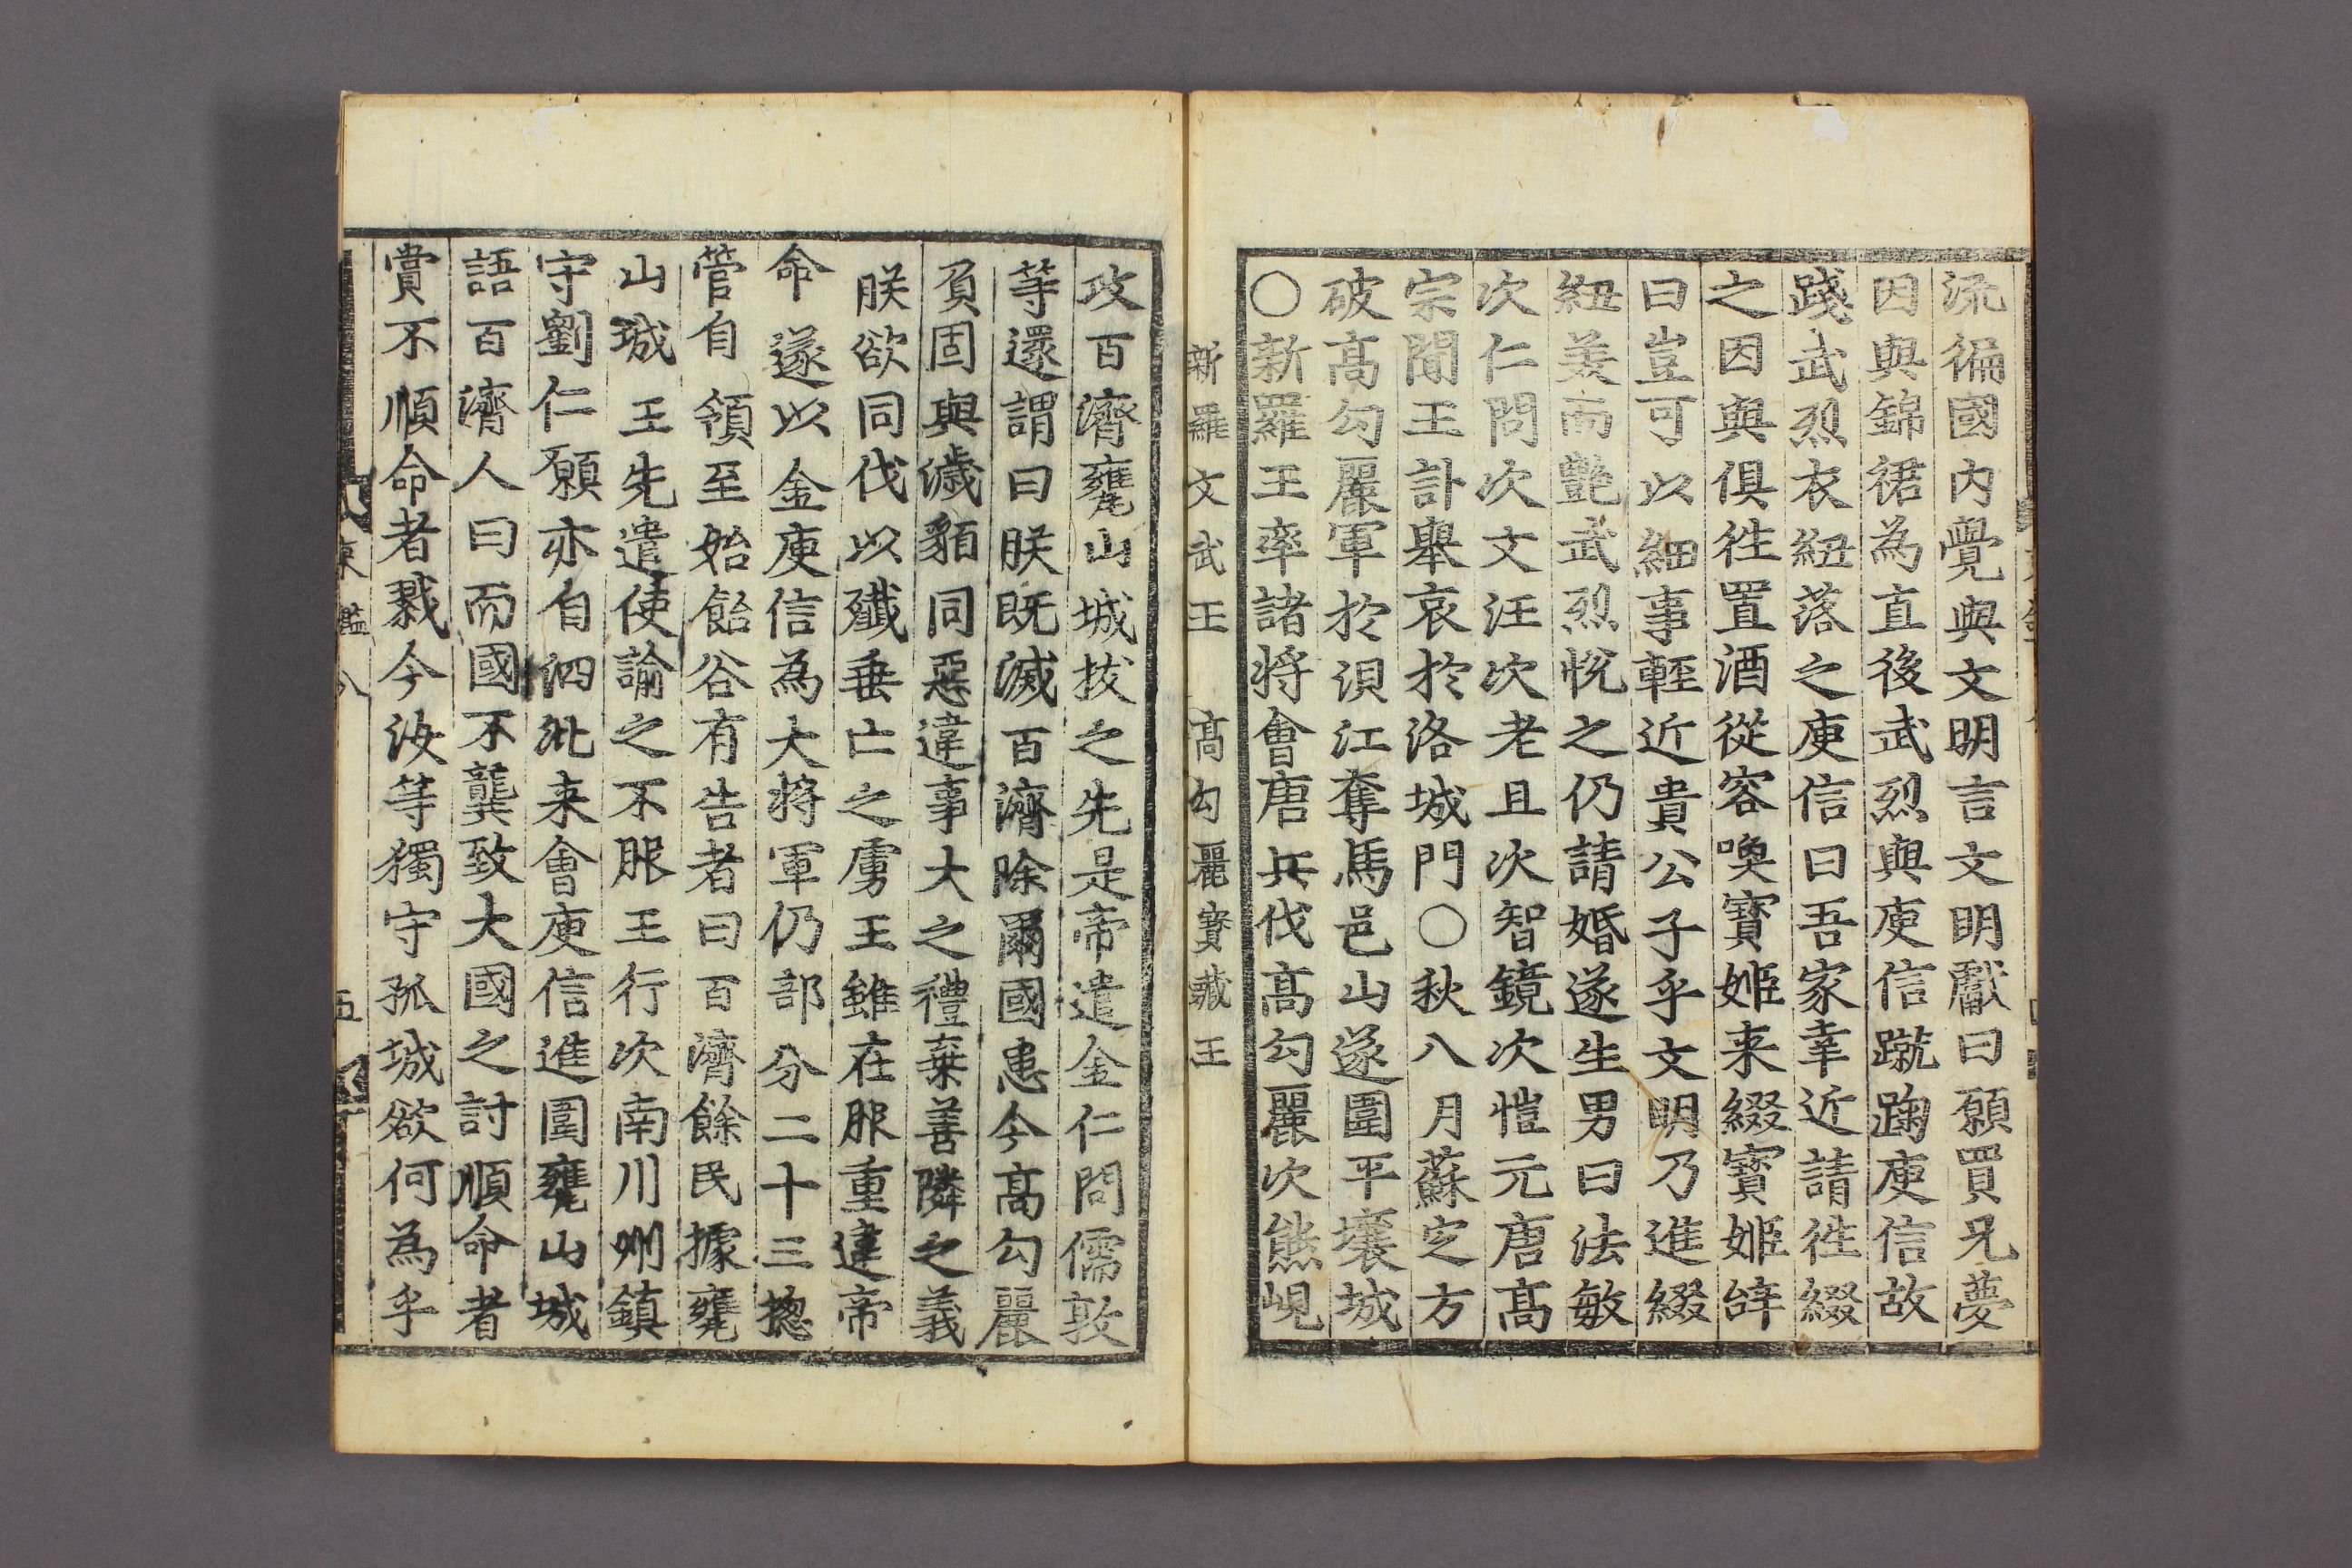 流徧國内覺與文明言文明獻曰願買兄夢
因與錦裙為直後武烈與庾信蹴踘庾信故
踐武烈衣紐落之庾信曰吾家幸近請徃綴
之因與俱徃置酒從容喚寶姬来綴寶姬辝
曰豈可以細事輕近貴公子乎文明乃進綴
紐美而艶武烈悅之仍請婚遂生男曰法敏
次仁問次文汪次老且次智鏡次愷元唐髙
宗聞王訃舉哀於洛城門○秋八月蘇定方
破髙勾麗軍於浿江奪馬邑山遂圍平壤城
○新羅王率諸将會唐兵伐髙勾麗次熊峴
新羅文武王 髙勾麗寳藏王
攻百濟甕山城拔之先是帝遣金仁問儒敦
等還謂曰朕既滅百濟除爾國患今髙勾麗
負固與濊貊同惡違事大之禮棄善隣之義
朕欲同伐以殲垂亡之虜王雖在服重違帝
命遂以金庾信為大將軍仍部分二十三摠
管自領至始飴谷有告者曰百濟餘民據甕
山城王先遣使諭之不服王行次南川州鎮
守劉仁願亦自泗沘来會庾信進圍甕山城
語百濟人曰而國不龔致大國之討順命者
賞不順命者戮今汝等獨守孤城欲何為乎
東 鑑 八 五